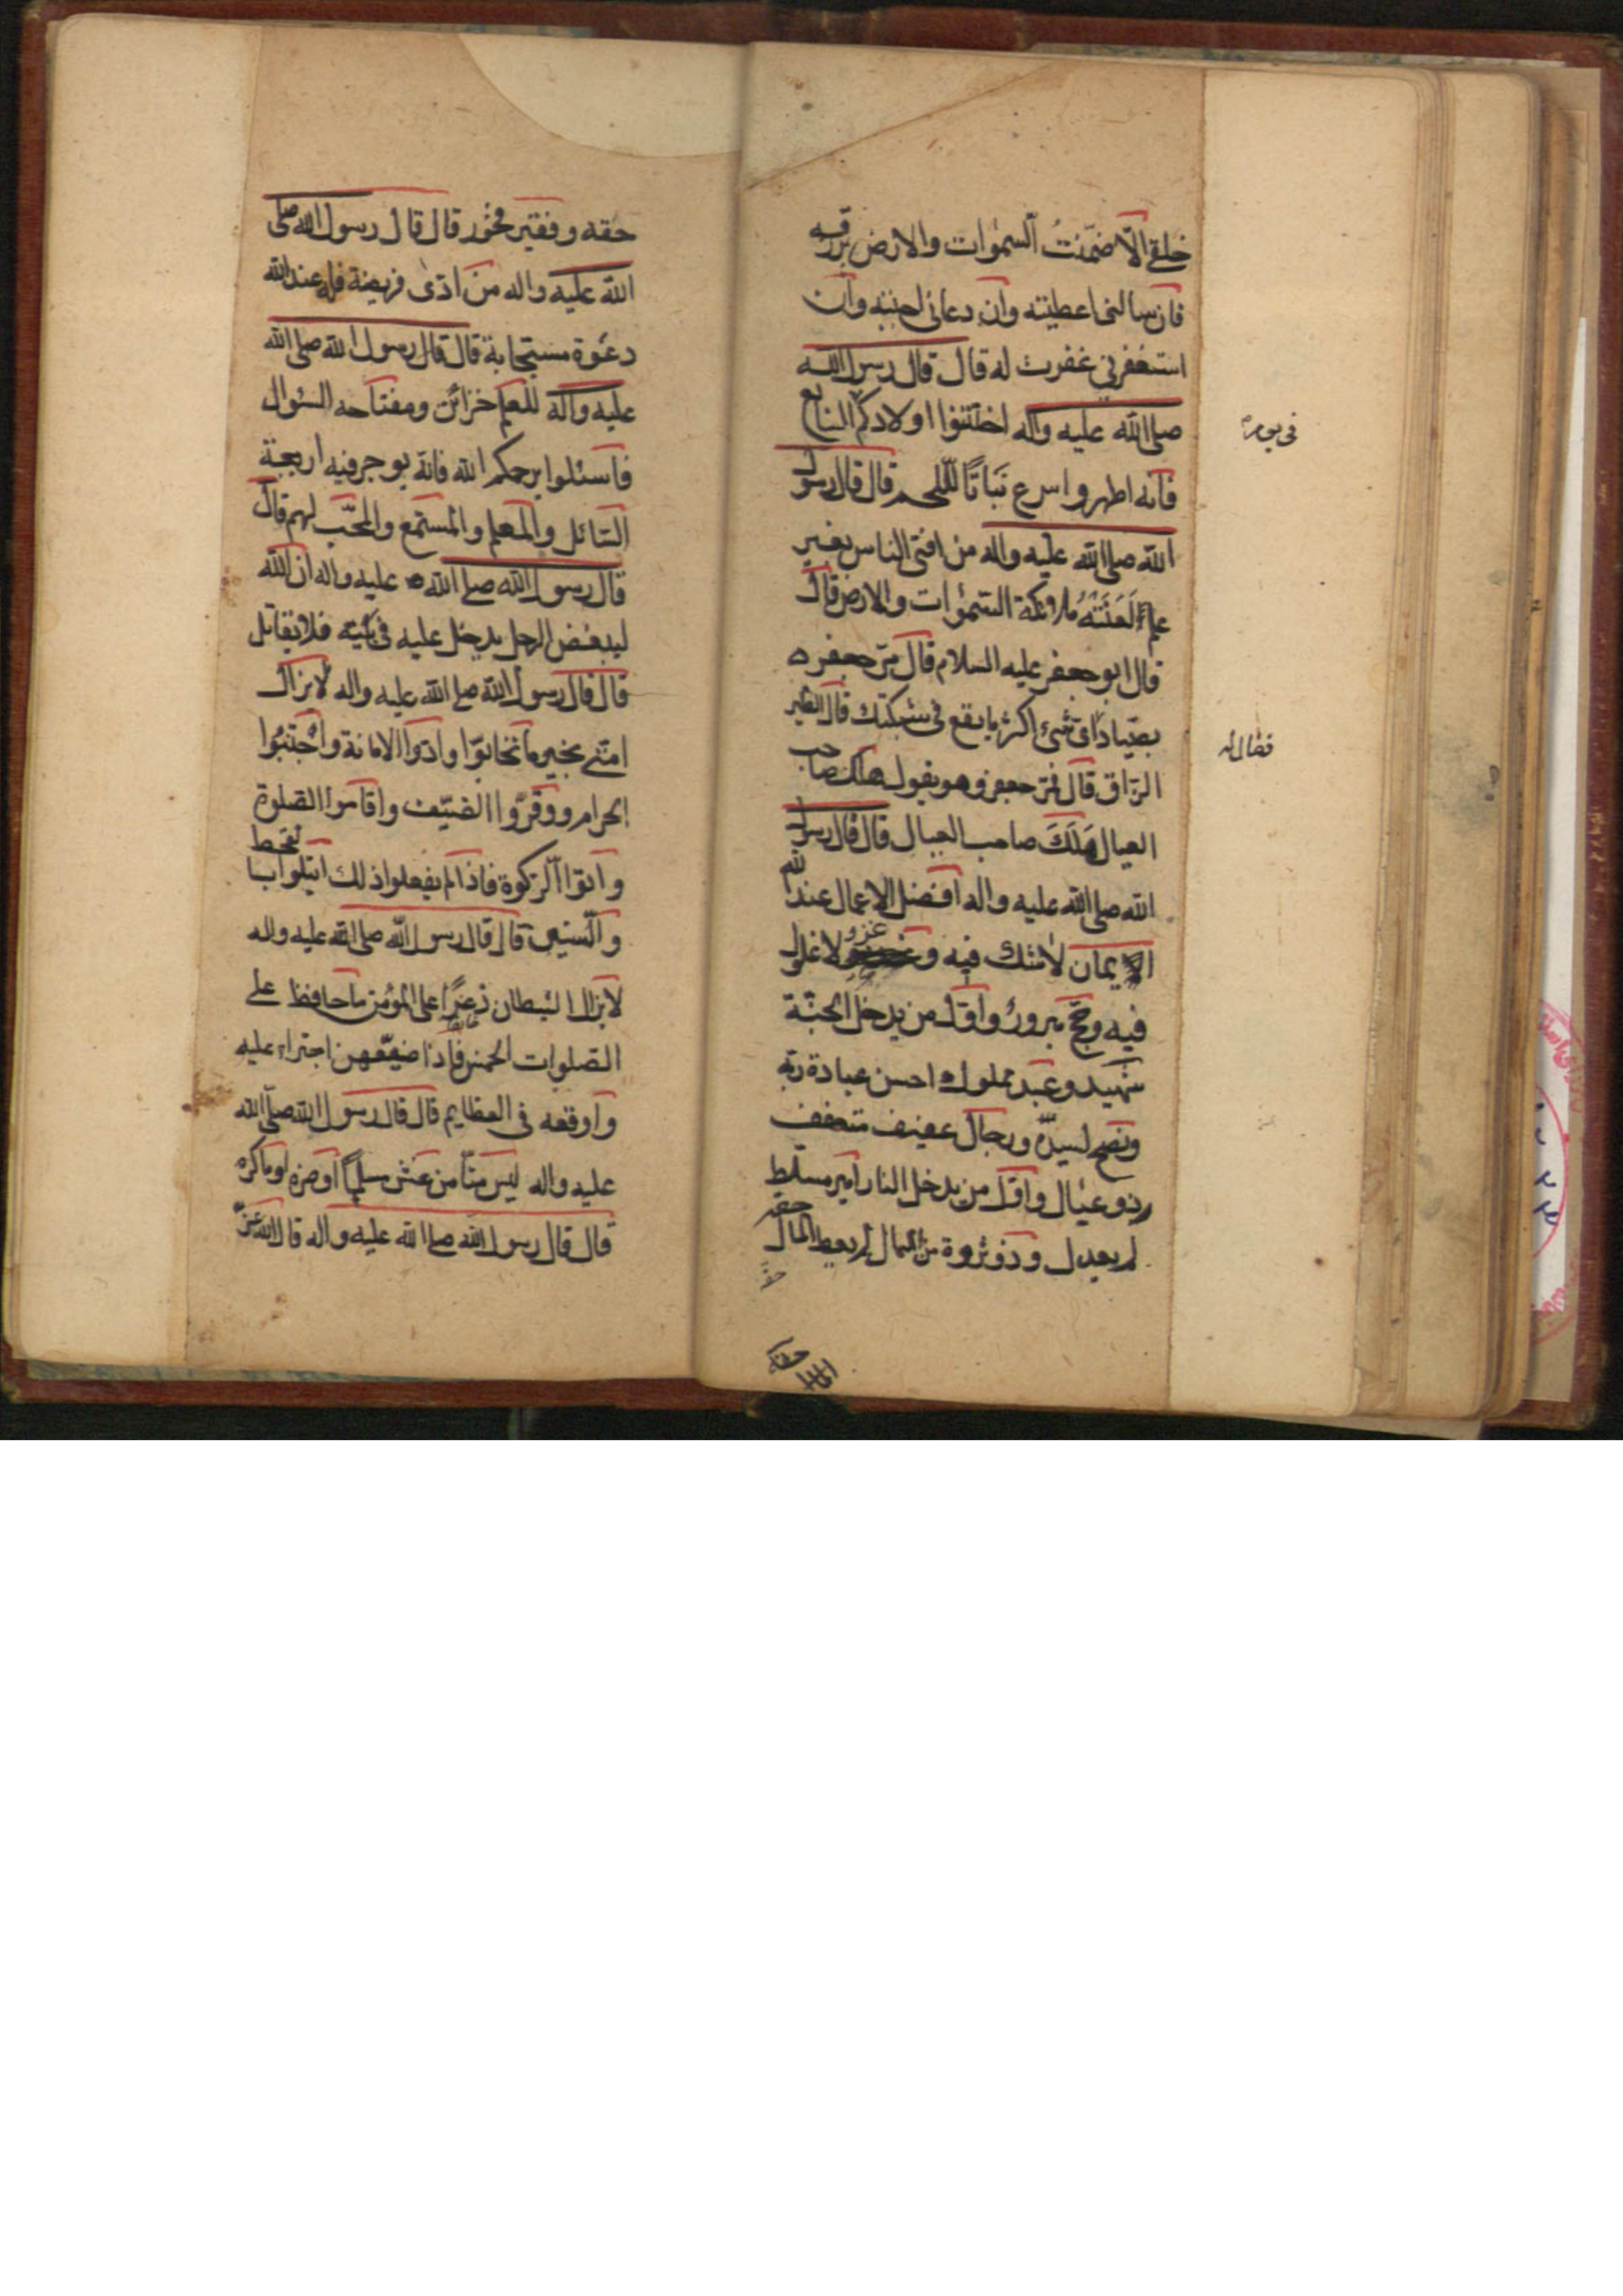 خلقي الّا ضمّنتُ السموات والارض برزقه
فان سالنى اعطيته وان دعانى اجبته وان
استغفرني غفرت له قال قال رسول الله
صلى الله عليه واله اختنوا اولادكم السابع
فى يوم
فانه اطهر واسرع نَبَاتًا للّحم قال قال رسول
الله صلى الله عليه واله من افتى الناس بغير
علم لَعَنَتْهُ ملائكة السموات والارض قال
قال ابو جعفر عليه السلام قال مرّ جعفر
بصيّاد اى شىء اكثر ما يقع فى شبكتك قال الطير
فقال له
الزّاق قال فمرّ جعفر وهو يقول هلك صاحب
العيال هَلَكَ صاحب العيال قال قال رسول
الله صلى الله عليه واله افضل الاعمال عند الله
الايمان لا شك فيه و غزو لا غلول
فيه وحجّ مبرور واوّل من يدخل الجنّة
شهيد وعبد مملوك احسن عبادة ربّه
ونصح لسيدّه ورجال عفيف متعفف
وذو عيال واوّل من يدخل النار امير مسلّط
لم يعدل وذو ثروة من المال لم يعط المال حقه
حقه
حقه وفقير فخور قال قال رسول الله صلى
الله عليه واله من ادّى فريضة فله عند الله
دعوة مستجابة قال قال رسول الله صلى الله
عليه وآله للعلم خزائن ومفتاحه السئوال
فاسئلوا يرحمكم الله فانّه يوجر فيه اربعة
السّائل والمعلم والمستمع والمحّب لهم قال
قال رسول الله صلى الله عليه واله ان الله
ليبغض الرجل يدخل عليه فى بيته فلا يقاتل
قال قال رسول الله صلى الله عليه واله لا يزال
امتى بخير ما تحابّوا وادّوا الامانة واجتنبُوا
الحرام ووقّروا الضّيف واقاموا الصّلوة
واتوا الزكوة فاذا لم يفعلوا ذلك ابتلوا بالقحط
والسّنين قال قال رسول الله صلى الله عليه واله
لا يزال الشيطان ذعرًا على المؤمن ما حافظ على
الصّلوات الخمس فاذا ضيعهن اجتراء عليه
واوقعه فى العظايم قال قال رسول الله صلّى الله
عليه واله ليس منّا من غش مسلمًا او ضره او ماكره
قال قال رسول الله صلى الله عليه واله قال الله عزّ